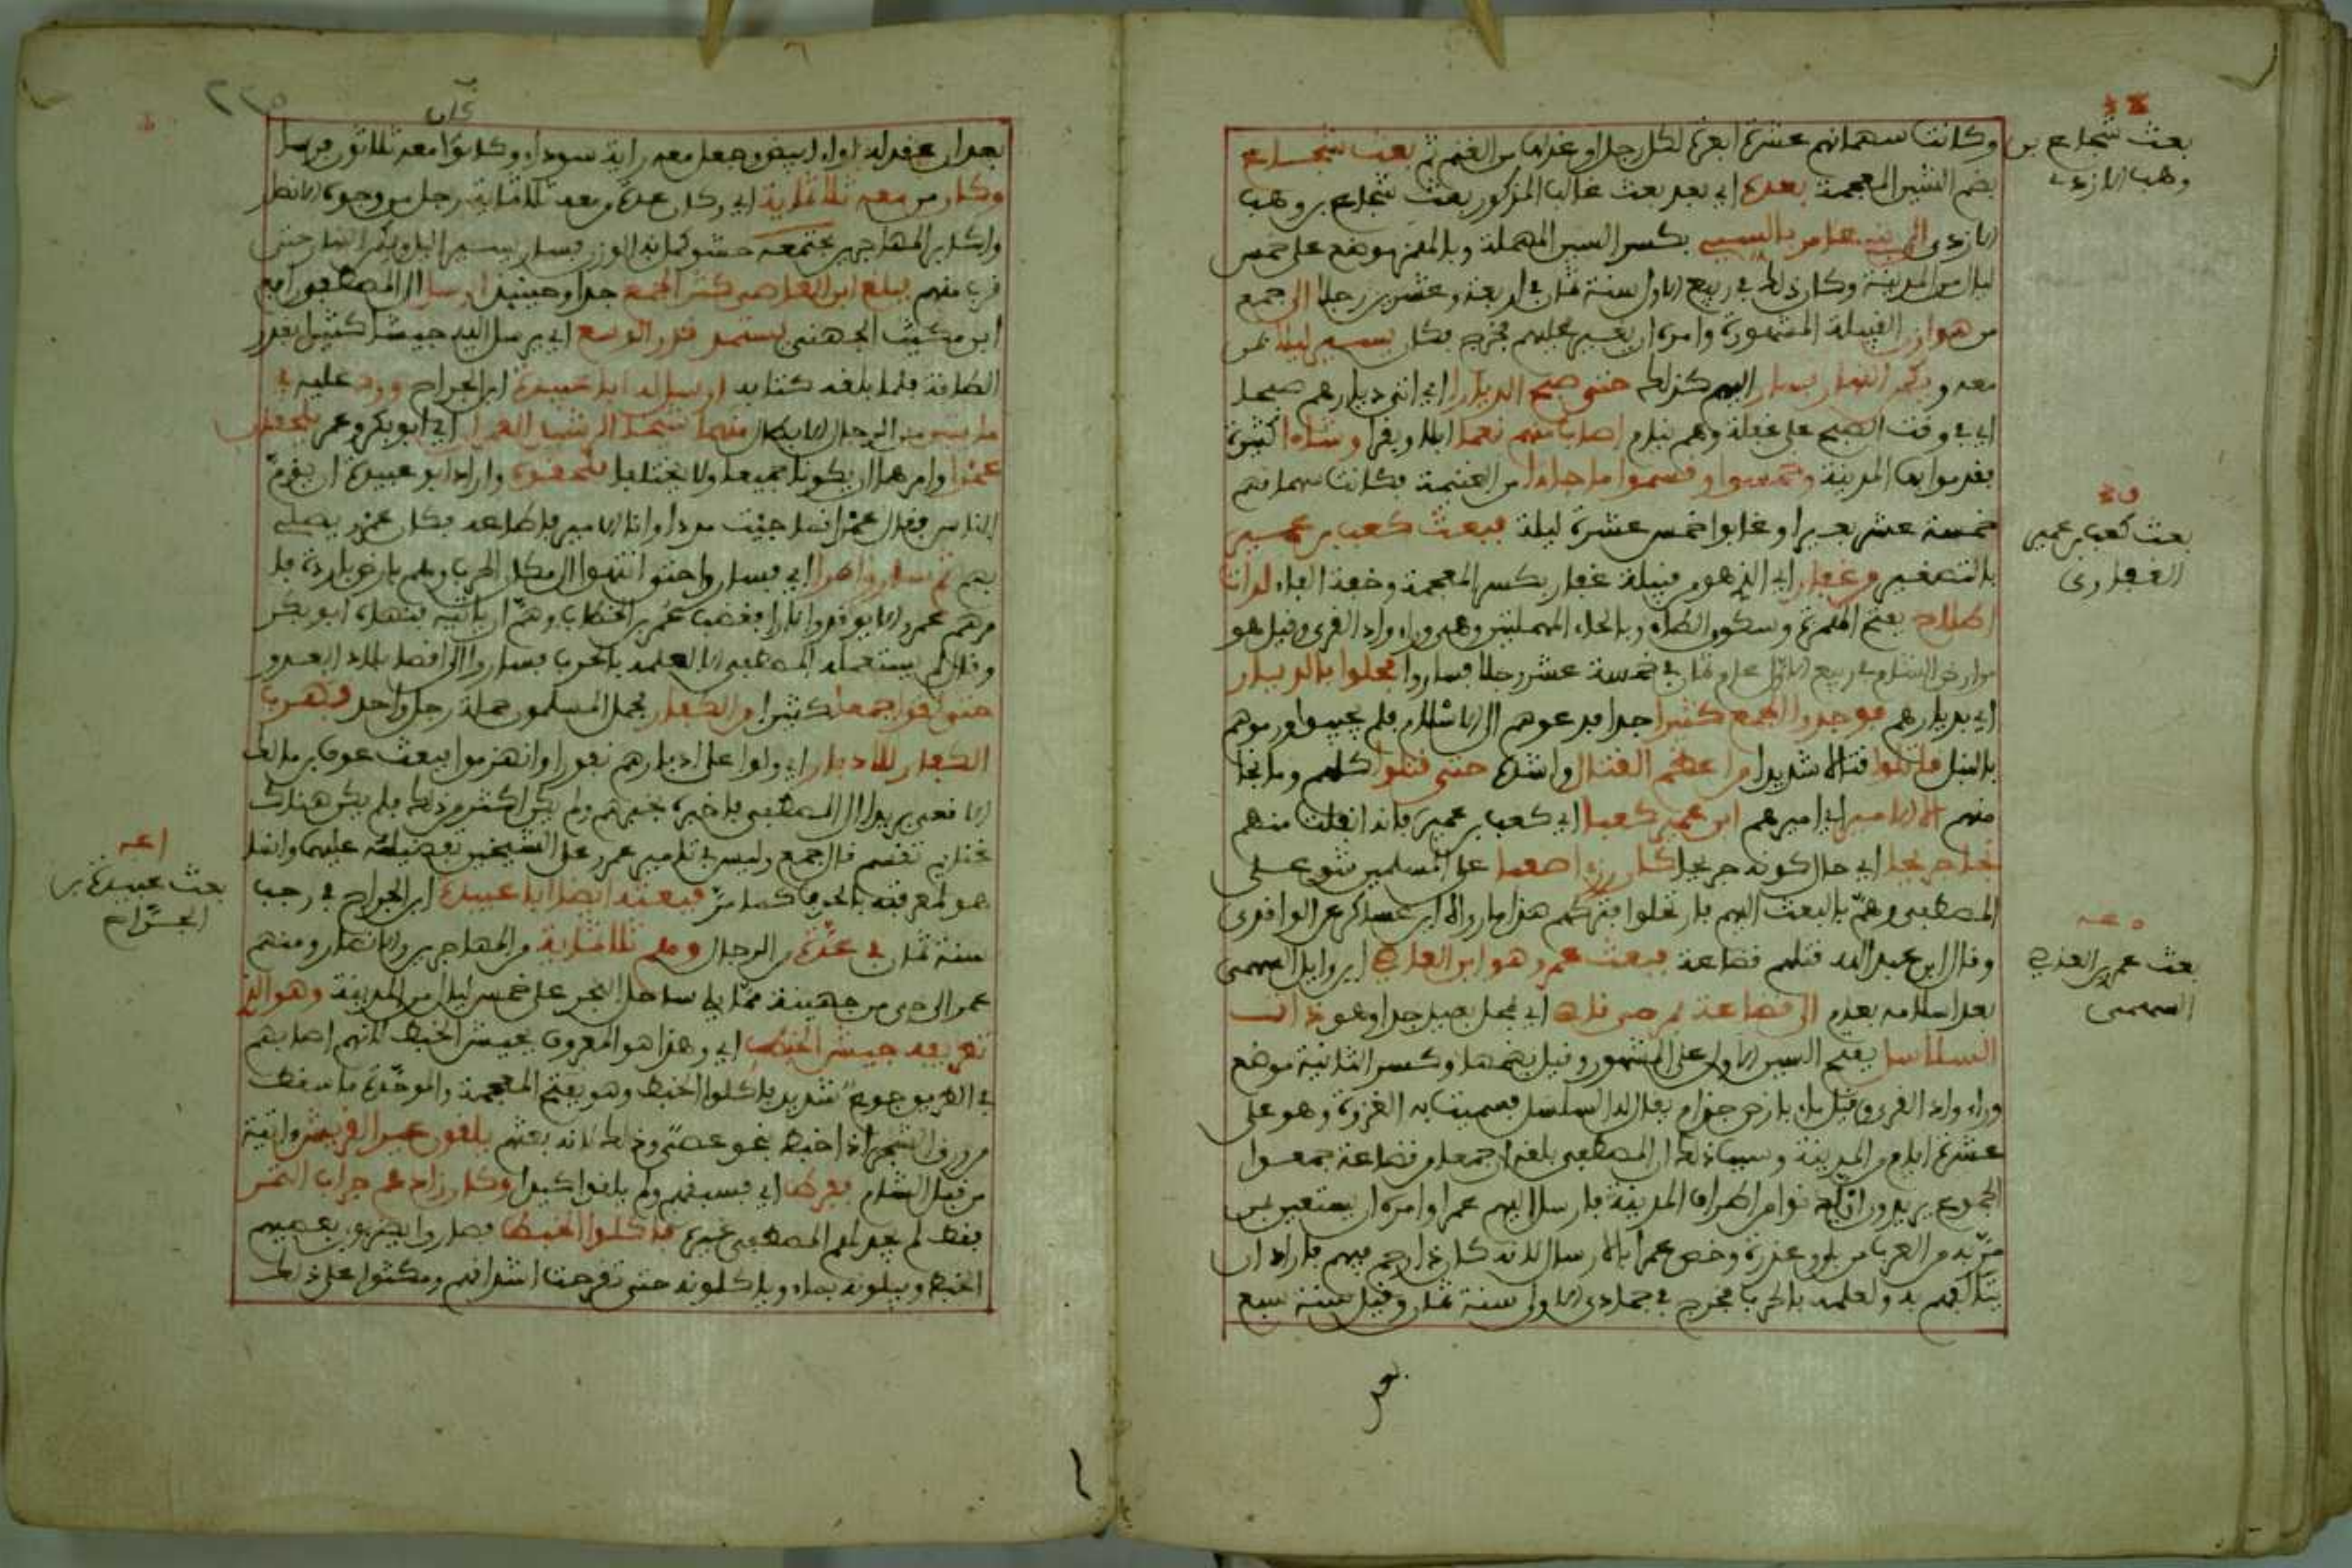 بعث شجاع بن
وهب الازدي
وكانت سهمانهم عشرة ابعرة لكل رجل او عدلها من الغنم ثم بعث شجاع
بضم الشين المعجمة بعده اي بعد بعث غالب المذكور بعث شجاع بن وهب
الازدي الى بني عامر بالسيي بكسر السين المهملة وبالهمز موضع على خمس
ليال من المدينة وكان ذلك في ربيع الاول سنة ثمان في اربعة وعشرين رجلا الى جمع
من هوازن القبيلة المشهورة وامره ان يغير عليهم فخرج فكان يسير ليلا بمن
معه و النهار فسار اليهم كذلك حتى صبح الديارا اي اتى ديارهم صبحا
اي في وقت الصبح على غفلة وهم نيام اصاب منهم نعما ابلا وبقرا وشاء كثيرة
فقدموا بها المدينة وقسموا ما جاءوا من الغنيمة فكانت سهمانهم
خمسة عشر بعيرا وغابوا خمس عشرة ليلة فبعث كعب بن عمير
بعث كعب بن عمير
الغفاري
بالتصغير من غفار اي الذي هو من قبيلة غفار بكسر المعجمة وخفة الفاء لذات
اطلاح بفتح الهمزة وسكون الطاء وبالحاء المهملتين وهي وراء وادي القرى وقيل هو
من ارض الشام في ربيع الاول عام ثمان في خمسة عشر رجلا فساروا فحلوا بالديار
اي بديارهم فوجدوا الجمع كثيرا جدا فدعوهم الى الاسلام فلم يجيبوا ورموهم
بالنبل قاتلوا قتالا شديدا من اعظم القتال واشده حتى قتلوا كلهم وما نجا
منهم الا الامير اي اميرهم ابن عمير كعبا اي كعب بن عمير فانه انفلت منهم
نجا جريحا اي حال كونه جريحا كان رزءا صعبا على المسلمين شق على
المصطفى وهم بالبعث اليهم فارتحلوا فتركهم هذا ما رواه ابن عساكر عن الواقدي
وقال ابن عبد البر قتلهم قضاعة فبعث عمرو هو ابن العاصي ابن وايل السهمي
بعث عمرو بن العاصي
السهمي
بعد اسلامه بعام الى قضاعة بمرمى قاص اي بمحل بعيد جدا وهو ذات
السلاسل بفتح السين الاولى على المشهور وقيل بضمها وكسر الثانية موضع
وراء وادي القرى وقيل ماء بارض جذام يقال له السلسل فسميت به الغزوة وهو على
عشرة ايام من المدينة وسبب ذلك ان المصطفى بلغه ان جمعا من قضاعة جمعوا
الجموع يريدون ان يدنوا من اطراف المدينة فارسل اليهم عمرا وامره ان يستعين بمن
مر به من العرب من بلي وعذرة وخص عمرا بالارسال لانه كان ذا رحم فيهم فاراد ان
يتالفهم به ولعلمه بالحرب فخرج في جمادى الاولى سنة ثمان وقيل سنة سبع
بعد
بعد ان عقد له لواء ابيض وجعل معه راية سوداء وكانوا معه ثلاثون فرسا
وكان من معه ثلاثماية اي وكان عدة من معه ثلاثماية رجل من وجوه الانصار
واكابر المهاجرين فسار يسير الليل ويكمن النهار حتى
قرب منهم فبلغ ابن العاص كثر الجمع جدا وحينيذ ارسل الى المصطفى رافع
ابن مكيث الجهني يستمد قدر الوسع اي يرسل اليه جيشا كثيرا بقدر
الطاقة فلما بلغه كتابه ارسل له ابا عبيدة ابن الجراح ورد عليه في
مايتين من الرجال الابطال منهما الشيخان اي ابو بكر وعمر يلحقان
عمرا وامرهما ان يكونا جميعا ولا يختلفا فلحقوه واراد ابو عبيدة ان يؤم
الناس فقال عمرو انما جيت مددا وانا الامير فاطاعه فكان عمرو يصلي
بهم ثم سار اي فساروا حتى انتهوا الى مكان الحرب وهم بارض باردة فا
مرهم عمرو الا يوقدوا نارا فغضب عمر بن الخطاب وهم ان ياتيه فنهاه ابو بكر
وقال لم يستعمله المصطفى الا لعلمه بالحرب فساروا الى اقصا بلاد العدو
حتى لقوا جمعا كثيرا من الكفار فحمل المسلمون حملة رجل واحد فهرب
الكفار للادبار اي ولوا على ادبارهم نفورا وانهزموا فبعث عوف بن مالك
الاشجعي بريدا الى المصطفى فاخبره بخبرهم ولم يكن اكثر من ذلك فلم يكن هناك
غنايم تقسم قال جمع وليس في تامير عمرو على الشيخين تفضيله عليهما وانما
هو لمعرفته بالحرب كما مر فبعثه ايضا ابا عبيدة ابن الجراح في رجب
بعث عبيدة بن
الجراح
سنة ثمان في عدة من الرجال وهم ثلاثماية من المهاجرين والانصار ومنهم
عمر الى حي من جهينة مما يلي ساحل البحر على خمس ليال من المدينة وهو الذي
تعريفه جيش الخبط اي وهذا هو المعروف بجيش الخبط لانهم اصابهم
في الطريق جوع شديد فاكلوا الخبط وهو بفتح المعجمة والموحدة ما سقط
من ورق الشجر اذا خبط بنحو عصى وذلك لانه بعثهم يلقون عير القريش واتية
من قبل الشام ففرطت اي فسبقتهم ولم يلقوا كيدا وكان زادهم جراب التمر
فقط لم يجد لهم المصطفى غيره فاكلوا الخبط فصاروا يضربون بعصيهم
الخبط ويبلونه بماء وياكلونه حتى تقرحت اشداقهم ومكثوا على ذلك